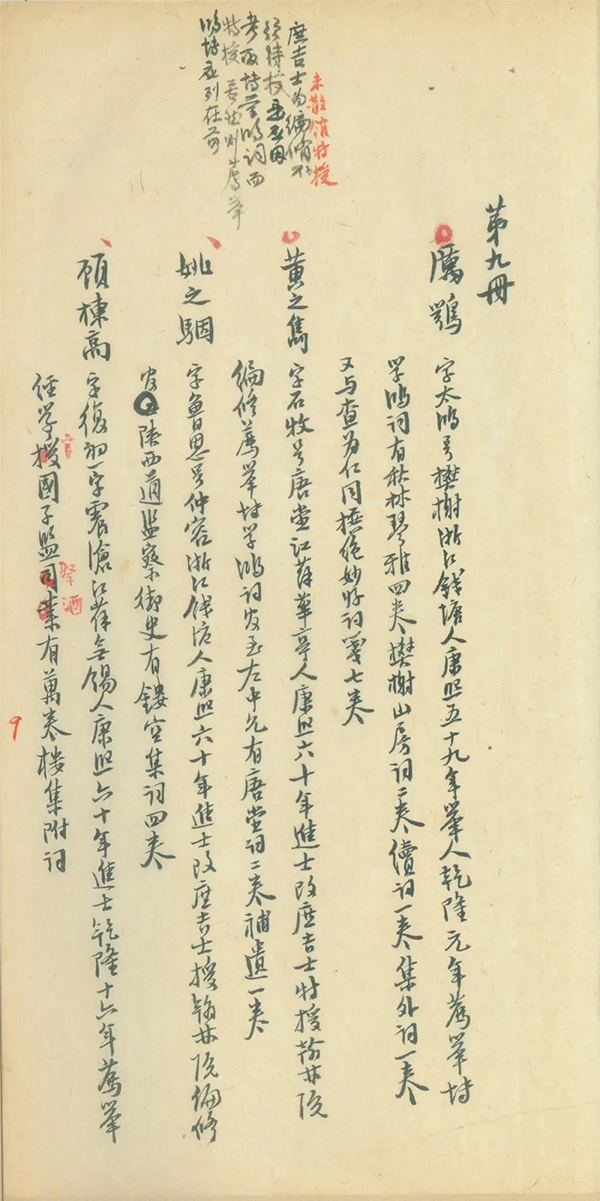 未散館特授
庶吉士为編修不
须特授
考取博学鴻词而
特授 若然则薦举
鴻博应列在前
第九冊
厲鶚 字太鴻号樊榭浙江錢塘人康熙五十九年舉人乾隆元年薦舉博
学鴻词有秋林琴雅四卷樊榭山房词二卷續词一卷集外词一卷
又与查为仁同撰绝妙好词箋七卷
黄之雋 字石牧号唐堂江蘇華亭人康熙六十年進士改庶吉士特授翰林院
編修薦舉博学鴻词官至左中允有唐堂词二卷補遺一卷
姚之駰 字魯思号仲容浙江錢塘人康熙六十年進士改庶吉士授翰林院編修
官陕西道監察御史有鏤空集词四卷
顾棟高 字復初一字震滄江蘇無锡人康熙六十年進士乾隆十六年薦舉
经学授國子監司業有萬卷樓集附词
祭酒
9